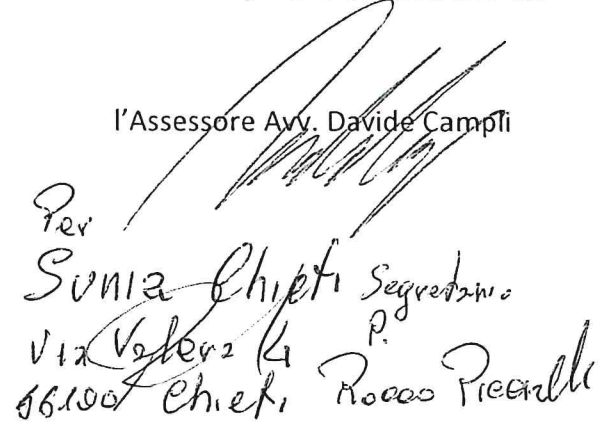 l'Assessore Avv. Davide Campli
Per
Sunia Chieti Segretario
Via Valera P.
66100 Chieti Rocco